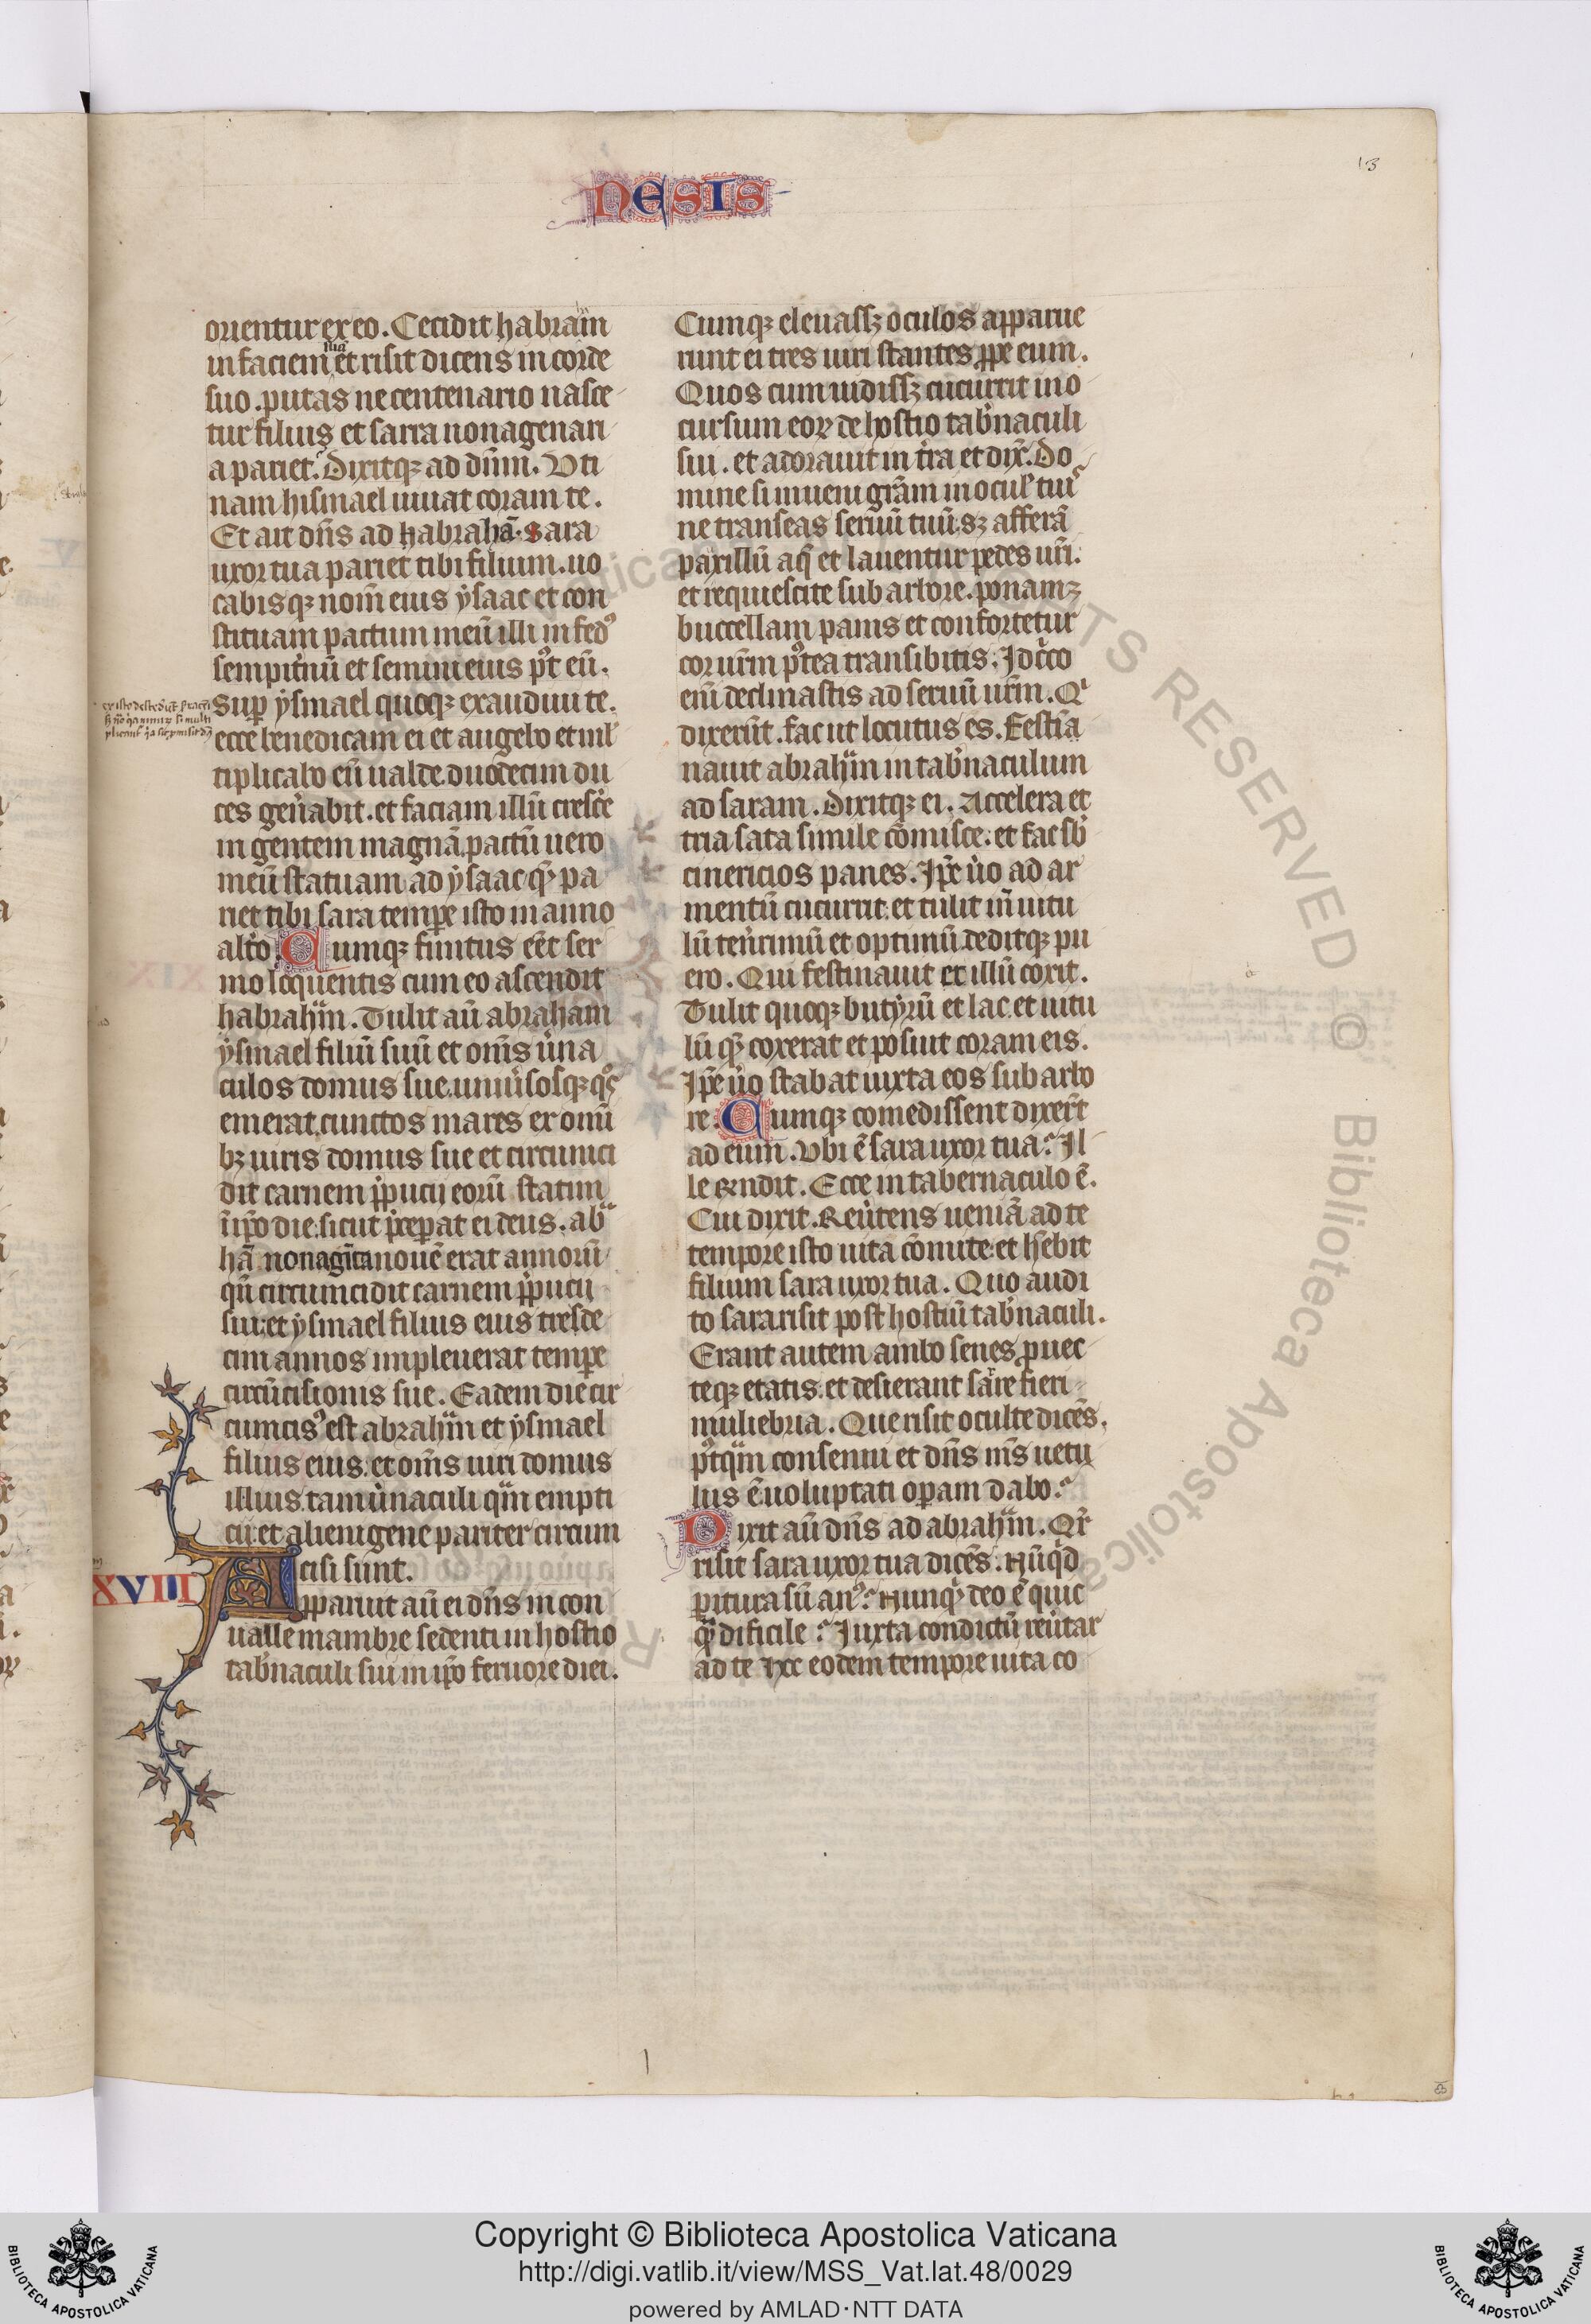 13
NESIS
orientur ex eo. Cecidit habram
in faciem suā et risit dicens in corde
suo. putas ne centenario nasce
tur filius et sarra nonagenari
a pariet? Dixitqꝫ ad dn̄m. Uti
nam hismael uiuat coram te.
Et ait dn̄s ad habrahā. Sara
uxor tua pariet tibi filium. uo
cabisqꝫ nom̄ eius ẏsaac et con
stituam pactum meū illi in fedꝰ
sempit̉nū et semini eius pꝰt eū.
Suꝑ ẏsmael quoqꝫ exaudiui te.
ecce benedicam ei et augebo et ml̉
tiplicabo eū ualde. duodecim du
ces gen̉abit. et faciam illū cresc̉e
in gentem magnā. pactū uero
meū statuam ad ẏsaac qꝫ pa
riet tibi sara tempe isto in anno
alt̉o. Cumqꝫ finitus eēt ser
mo loquentis cum eo ascendit
habrahm̄. Tulit aū abraham
ẏsmael filiū suū et om̄s ủna
culos domus sue. uniủsosqꝫ qͦs
emerat. cunctos mares ex oni
bꝫ uiris domus sue et circunci
dit carnem p̄pucij eorū statim
in ip̄o die. sicut p̉ceꝑat ei deus. abͣ
hā nonagīta nouē erat annorū
qn̄ circumcidit carnem p̄pucij
sui. et ẏsmael filius eius tresde
cim annos impleuerat tempe
circūcisionis sue. Eadem die cir
cuncisꝰ est abrahm̄ et ẏsmael
filius eius. et om̄s uiri domus
illius. tam ủnaculi qm̄ empti
cij. et alienigene pariter circum
cisi sunt.
XVIII
Apparuit aū ei dn̄s in con
ualle mambre sedenti in hostio
tab̉naculi sui in ip̄o feruore diei.
Cumqꝫ eleuassꝫ oculos apparue
runt ei tres uiri stantes ꝓpe eum.
Quos cum uidissꝫ cucurrit in o
cursum eoꝝ de hostio tab̉naculi
sui. et adorauit in t̉ra et dix̄. Do
mine si inueni grām in ocul̉ tuis
ne transeas seruū tuū. sꝫ afferā
paxillū aq̄ et lauentur pedes ur̄i.
et requiescite sub arbore. ponamqꝫ
buccellam panis et confortetur
cor ur̄m pꝰtea transibitis. Idc̉co
eni declinastis ad seruū ur̄m. Qi
dixerūt. fac ut locutus es. Festīa
nauit abrahm̄ in tab̉naculum
ad saram. Dixitqꝫ ei. Accelera et
tria sata simile cōmisce. et fac sb̉
cinericios panes. Ip̄e ủo ad ar
mentū cucurrit. et tulit in̄ uitu
lū ten̉rimū et optimū. deditqꝫ pu
ero. Qui festinauit et illū coxit.
Tulit quoqꝫ butẏrū et lac. et uitu
lū qꝫ coxerat et posuit coram eis.
Ip̄e ủo stabat iuxta eos sub arbo
re. Cumqꝫ comedissent dixer̄t
ad eum. Vbi ē sara uxor tua? Il
le r̄ndit. Ecce in tabernaculo ē.
Cui dixit. Reủtens ueniā ad te
tempore isto uita cōmite. et h̄ebit
filium sara uxor tua. Quo audi
to sara risit post hostiū tab̉naculi.
Erant autem ambo senes ꝓuec
teqꝫ etatis. et desierant sar̄e fieri
muliebria. Que risit oculte dicēs.
pꝰtqm̄ consenui et dn̄s m̄s uetu
lus ē uoluptati oꝑam dabo?
Dixit aū dn̄s ad abrahm̄. Qr̄
risit sara uxor tua dicēs. Nūqd̉
paritura sū anꝰ? Nunqd̉ deo ē quic
qꝫ dificile? Juxta condictū reủtar
ad te hoc eodem tempore uita co
Copyright © Biblioteca Apostolica Vaticana
http://digi.vatlib.it/view/MSS_Vat.lat.48/0029
powered by AMLAD·NTT DATA
BIBLIOTECA APOSTOLICA VATICANA
BIBLIOTECA APOSTOLICA VATICANA